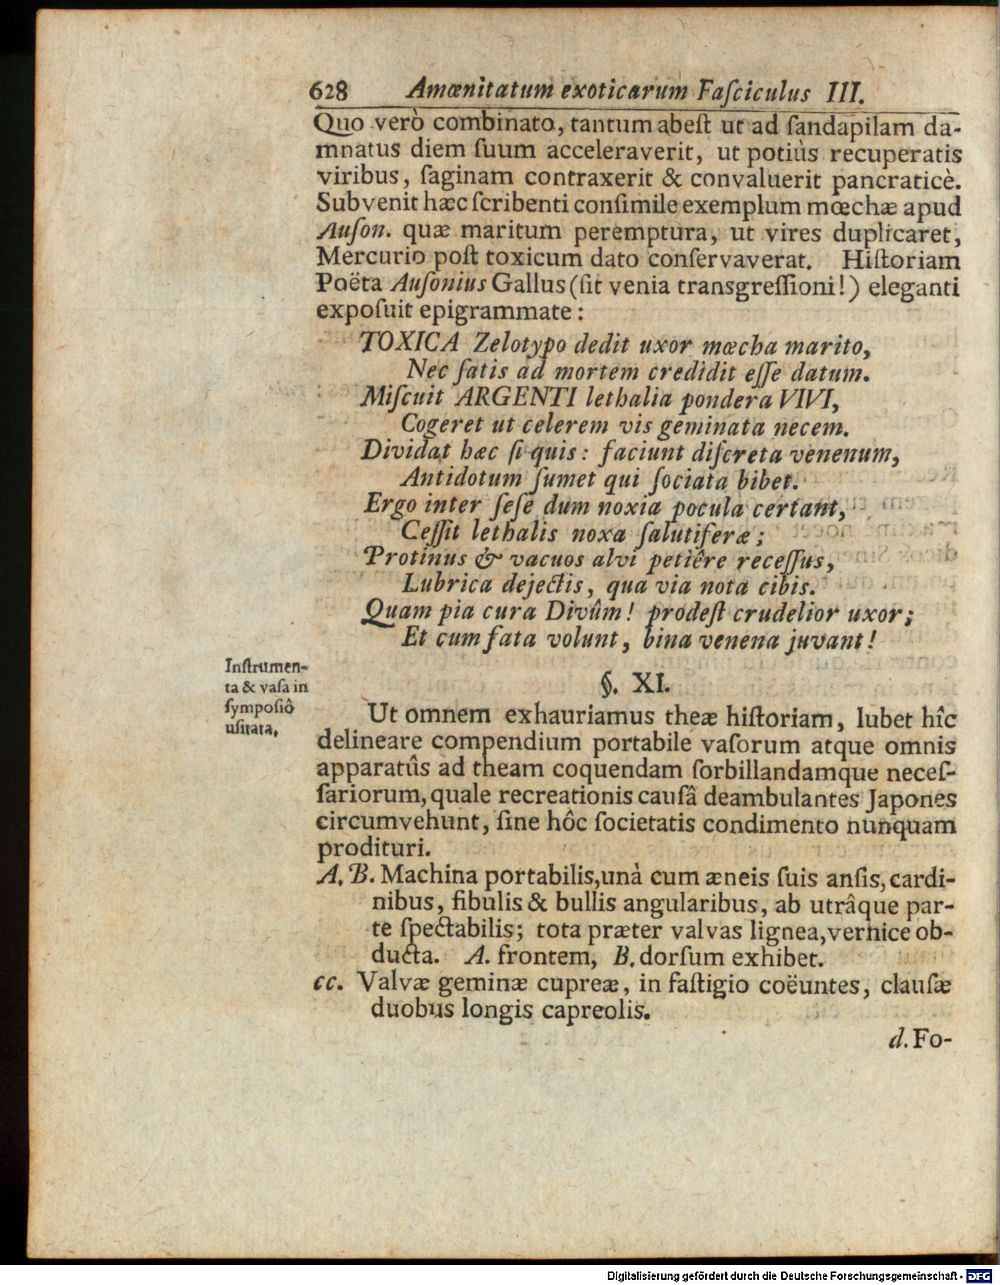 628 Amœnitatum exoticarum Faſciculus III.
Quo verò combinato, tantum abeſt ut ad ſandapilam da-
mnatus diem ſuum acceleraverit, ut potiùs recuperatis
viribus, ſaginam contraxerit & convaluerit pancraticè.
Subvenit hæc ſcribenti conſimile exemplum mœchæ apud
Auſon. quæ maritum peremptura, ut vires duplicaret,
Mercurio poſt toxicum dato conſervaverat. Hiſtoriam
Poëta Auſonius Gallus (ſit venia transgreſſioni!) eleganti
expoſuit epigrammate:
TOXICA Zelotypo dedit uxor mœcha marito,
Nec ſatis ad mortem credidit eſſe datum.
Miſcuit ARGENTI lethalia pondera VIVI,
Cogeret ut celerem vis geminata necem.
Dividat hæc ſi quis: faciunt diſcreta venenum,
Antidotum ſumet qui ſociata bibet.
Ergo inter ſeſe dum noxia pocula certant,
Ceſſit lethalis noxa ſalutiferæ;
Protinus & vacuos alvi petiêre receſſus,
Lubrica dejectis, qua via nota cibis.
Quam pia cura Divûm! prodeſt crudelior uxor;
Et cum fata volunt, bina venena juvant!
Inſtrumen-
ta & vaſa in
ſympoſiô
uſitata,
§. XI.
Ut omnem exhauriamus theæ hiſtoriam, lubet hîc
delineare compendium portabile vaſorum atque omnis
apparatûs ad theam coquendam ſorbillandamque neceſ-
ſariorum, quale recreationis cauſâ deambulantes Japones
circumvehunt, ſine hôc ſocietatis condimento nunquam
prodituri.
A. B. Machina portabilis, unà cum æneis ſuis anſis, cardi-
nibus, fibulis & bullis angularibus, ab utrâque par-
te ſpectabilis; tota præter valvas lignea, vernice ob-
ducta. A. frontem, B. dorſum exhibet.
cc. Valvæ geminæ cupreæ, in faſtigio coëuntes, clauſæ
duobus longis capreolis.
d. Fo-
Digitalisierung gefördert durch die Deutsche Forschungsgemeinschaft - DFG